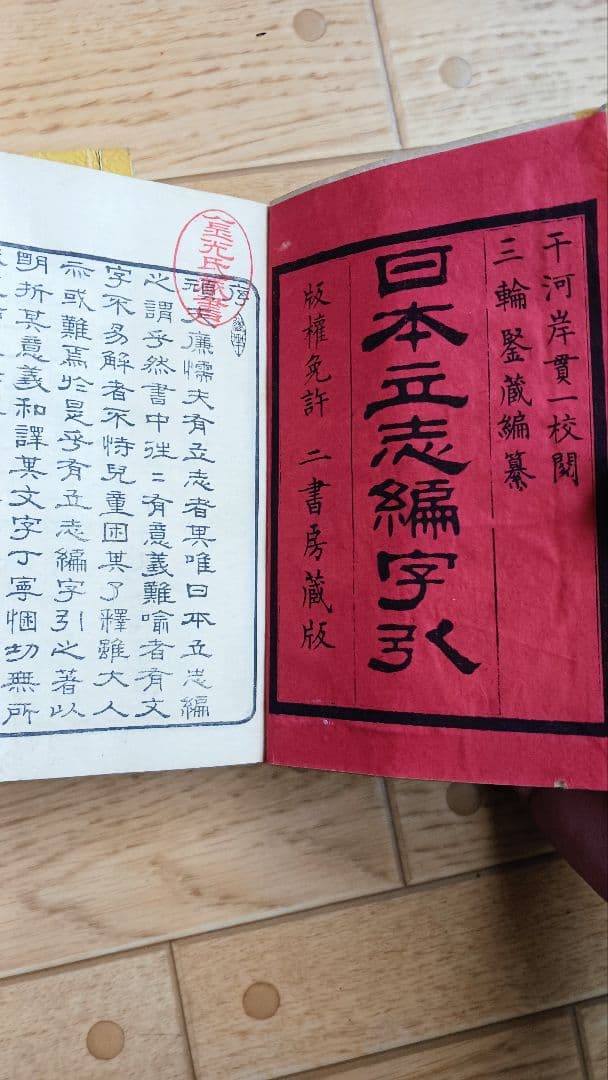 干河岸貫一校閲
三輪鋻蔵編纂
日本立志編字引
版權免許 二書房蔵版
序
頑夫廉懦夫有立志者其唯日本立志編
之謂乎然書中往〻有意義難喻者有文
字不易解者不特兒童困其了釋雖大人
亦或難焉於是乎有立志編字引之著以
明析其意義和譯其文字丁寧悃切無所
光氏藏書